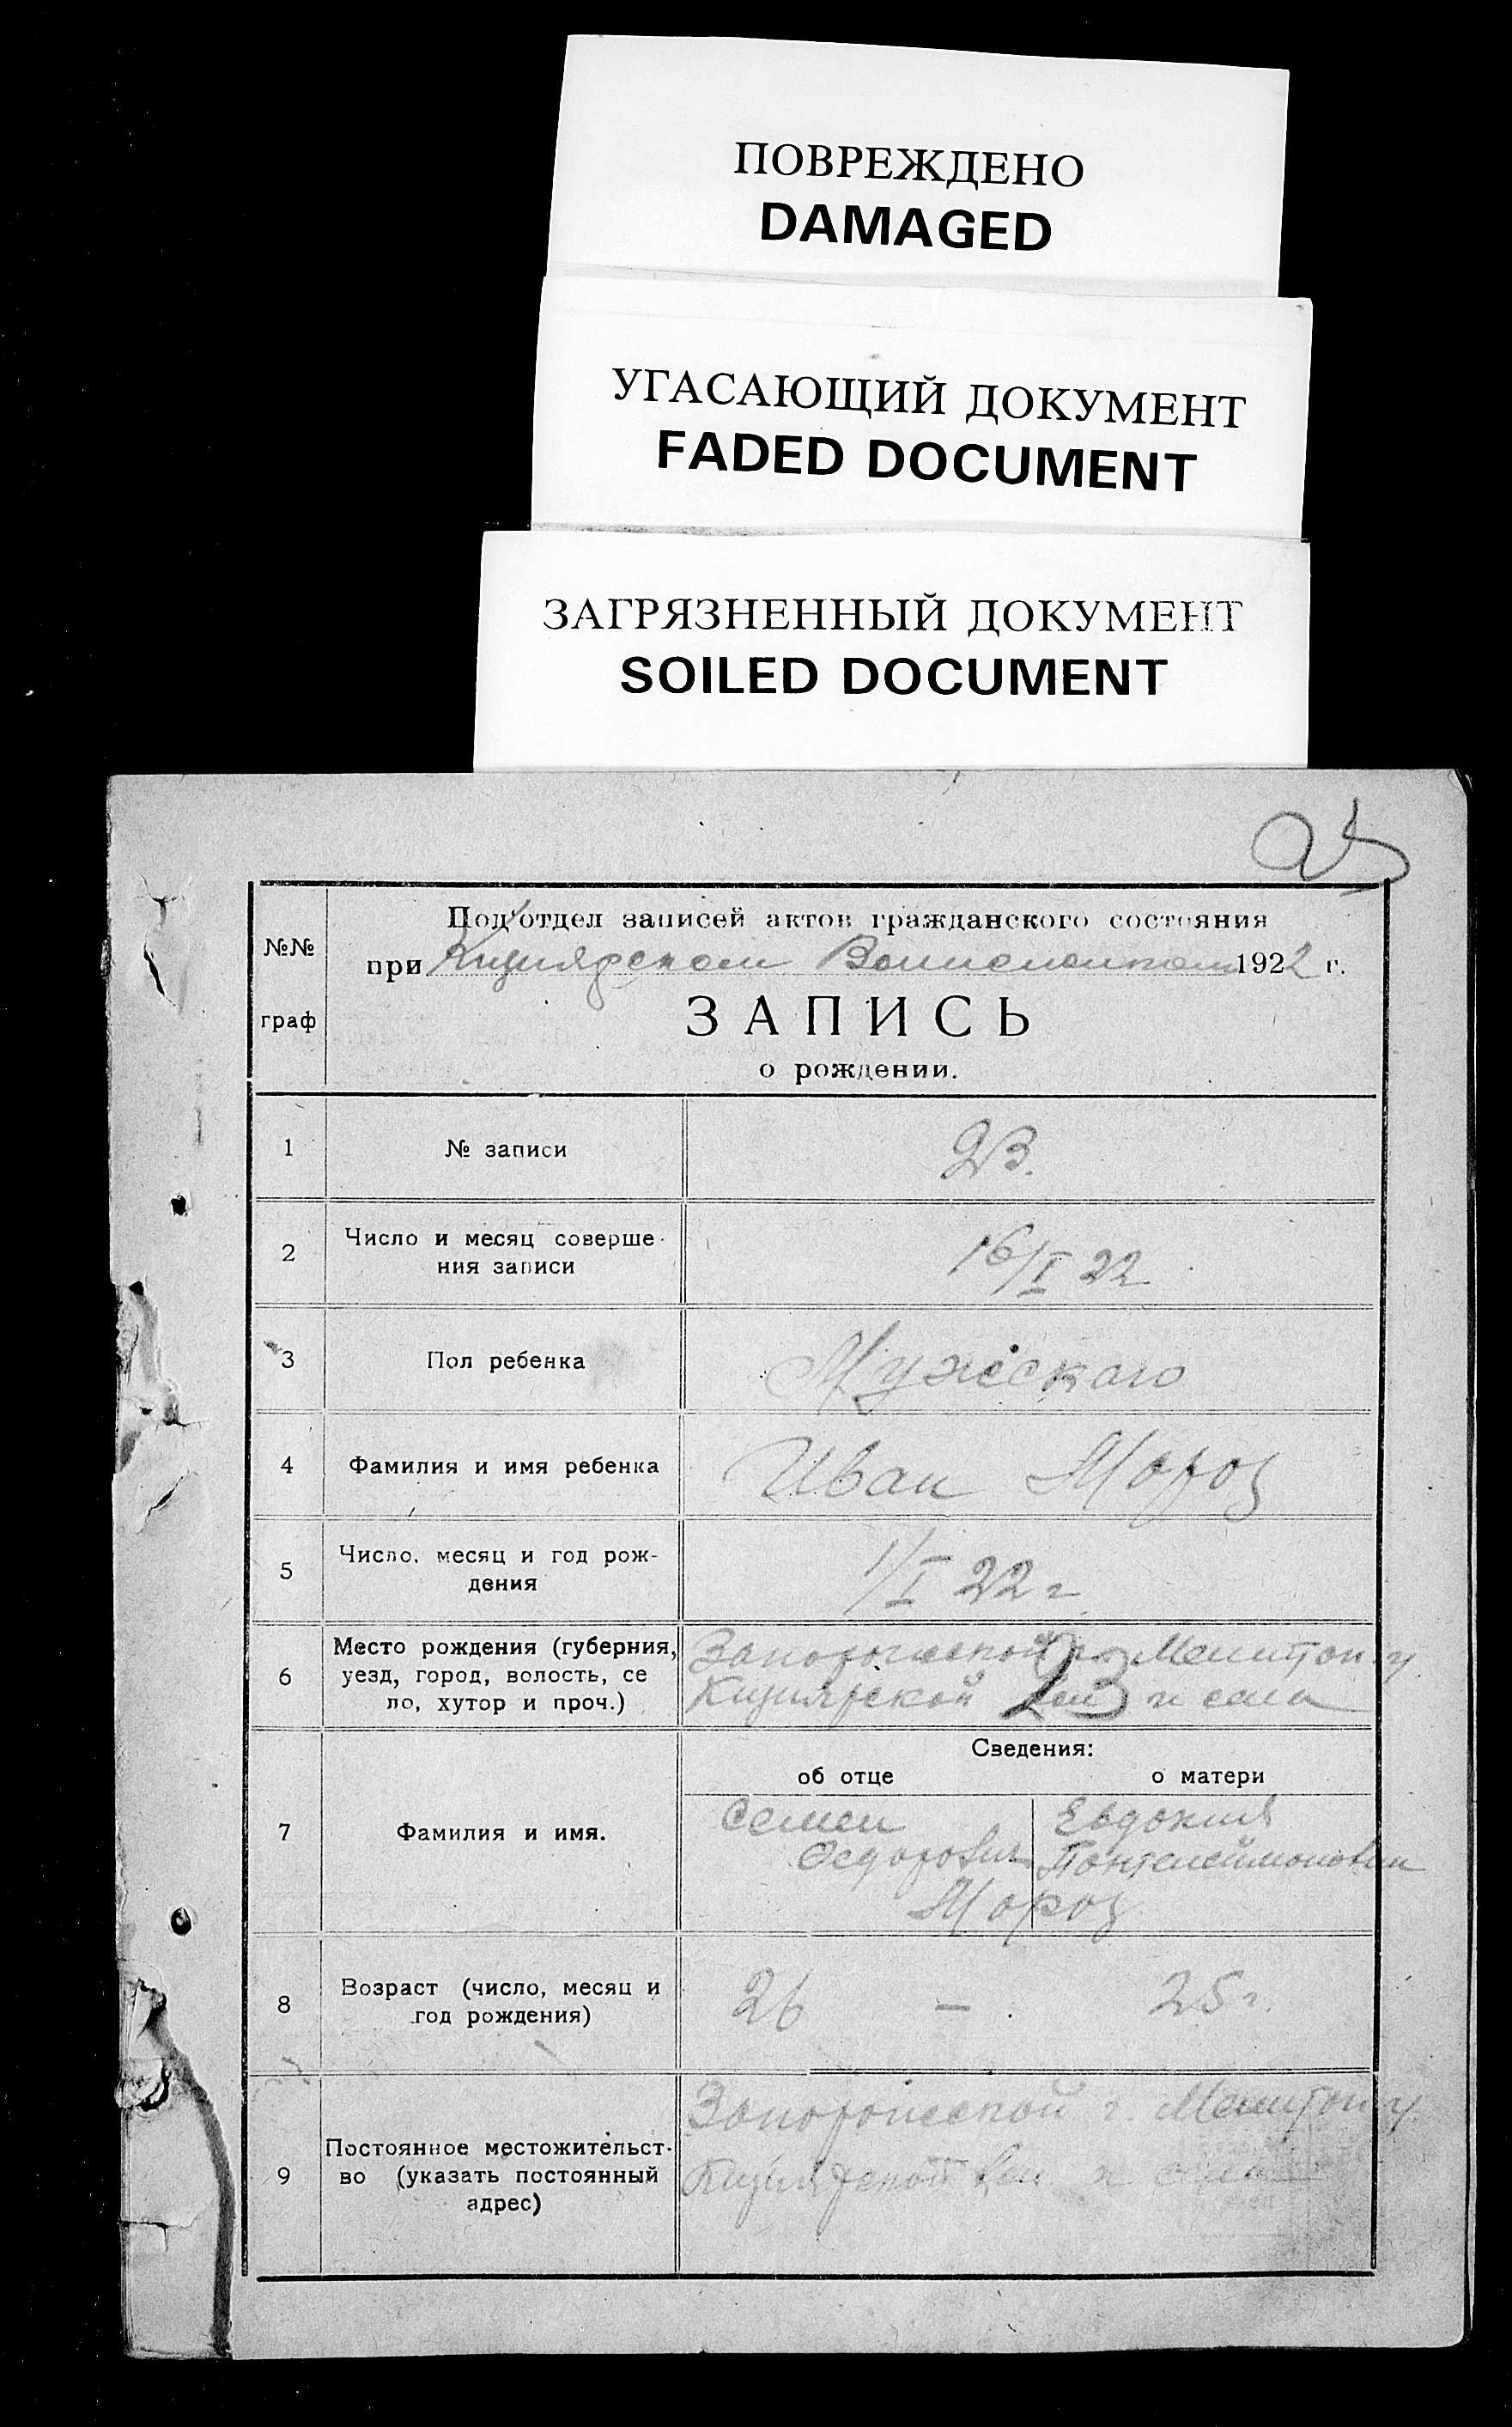 ПОВРЕЖДЕНО
DAMAGED
УГАСАЮЩИЙ ДОКУМЕНТ
FADED DOCUMENT
ЗАГРЯЗНЕННЫЙ ДОКУМЕНТ
SOILED DOCUMENT
№№
граф
Под'отдел записей актов гражданского состояния
при Кизиярском 1922 г.
ЗАПИСЬ
о рождении.
1 № записи 23.
2 Число и месяц соверше-
ния записи 16/I 22
3 Пол ребенка Мужескаго
4 Фамилия и имя ребенка Иван Мороз
5 Число, месяц и год рож-
дения 1/I 22 г
6 Место рождения (губерния, Запорожской г. Мелитоп у.
уезд, город, волость, се Кизиярской вол и села
ло, хутор и проч.) 23
Сведения:
об отце о матери
7 Фамилия и имя. Семен Евдокия
Федорович Пантелеймоновна
Мороз
8 Возраст (число, месяц и
год рождения) 26 — 25 г.
9 Постоянное местожительст-
во (указать постоянный
адрес)
Запорожской г. Мелитоп у.
Кизиярской вол и села